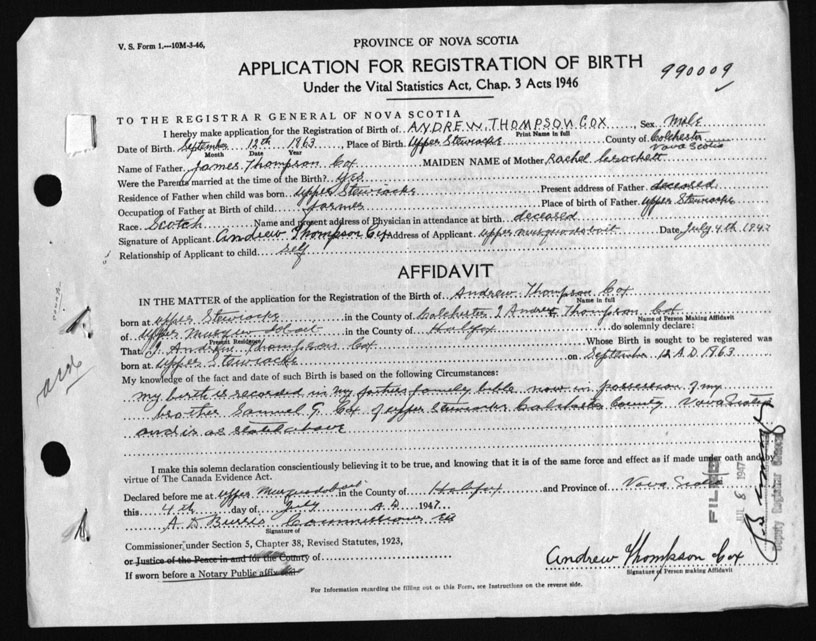 V. S. Form 1.—10M-3-46,
PROVINCE OF NOVA SCOTIA
APPLICATION FOR REGISTRATION OF BIRTH
Under the Vital Statistics Act, Chap. 3 Acts 1946
990009
TO THE REGISTRAR GENERAL OF NOVA SCOTIA
I hereby make application for the Registration of Birth of ANDREW THOMPSON COX Sex Male
Print Name in full
Date of Birth September 12th 1963 Place of Birth Upper Stewiacke County of Colchester
Month Date Year Nova Scotia
Name of Father James Thompson Cox MAIDEN NAME of Mother Rachel Crockett
Were the Parents married at the time of the Birth? yes
Residence of Father when child was born Upper Stewiacke Present address of Father deceased
Occupation of Father at Birth of child farmer Place of birth of Father Upper Stewiacke
Race Scotch Name and present address of Physician in attendance at birth deceased
Signature of Applicant Andrew Thompson Cox Address of Applicant Upper Musquodoboit Date July 4th 1947
Relationship of Applicant to child self
AFFIDAVIT
IN THE MATTER of the application for the Registration of the Birth of Andrew Thompson Cox
Name in full
born at Upper Stewiacke in the County of Colchester I Andrew Thompson Cox
Name of Person Making Affidavit
of Upper Musquodoboit in the County of Halifax do solemnly declare:
Present Residence
That I Andrew Thompson Cox Whose Birth is sought to be registered was
born at Upper Stewiacke on September 12 A.D. 1963
My knowledge of the fact and date of such Birth is based on the following Circumstances:
my birth is recorded in my fathers family bible now in possession of my
brother Samuel F. Cox of upper Stewiacke Colchester County Nova Scotia
and is as stated above
I make this solemn declaration conscientiously believing it to be true, and knowing that it is of the same force and effect as if made under oath and by
virtue of The Canada Evidence Act.
Declared before me at Upper Musquodoboit in the County of Halifax and Province of Nova Scotia
this 4th day of July A.D. 1947.
A. D. Burris Commissioner
Signature of
Commissioner under Section 5, Chapter 38, Revised Statutes, 1923,
or Justice of the Peace in and for the County of
If sworn before a Notary Public affix seal
Andrew Thompson Cox
Signature of Person making Affidavit
For Information regarding the filling out of this Form, see Instructions on the reverse side.
FILED
JUL 8 1947
Deputy Registrar General